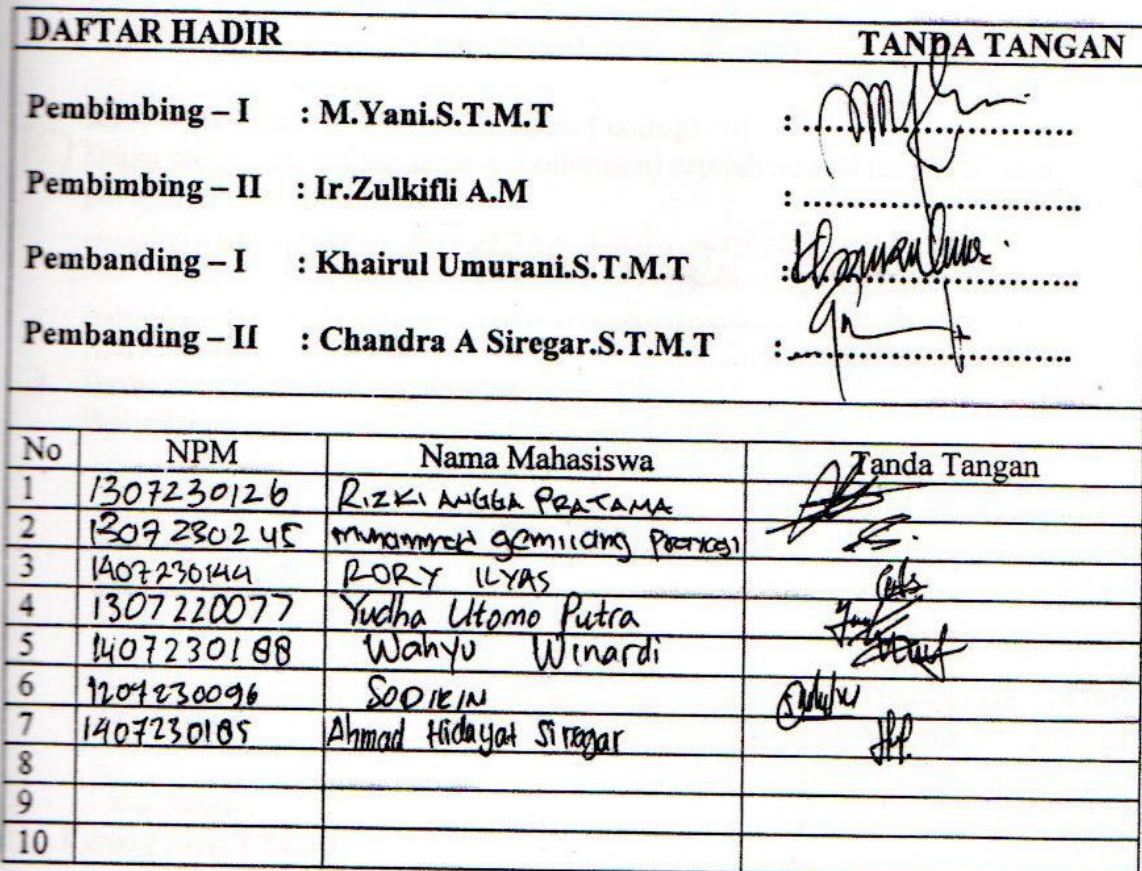 DAFTAR HADIR TANDA TANGAN
Pembimbing – I : M.Yani.S.T.M.T : ..............................
Pembimbing – II : Ir.Zulkifli A.M : ..............................
Pembanding – I : Khairul Umurani.S.T.M.T : ..............................
Pembanding – II : Chandra A Siregar.S.T.M.T : ..............................
No NPM Nama Mahasiswa Tanda Tangan
1 1307230126 RIZKI ANGGA PRATAMA
2 1307230245 Muhammad gemilang
3 1407230144 RORY ILYAS
4 1307220077 Yudha Utomo Putra
5 1407230188 Wahyu Winardi
6 1207230096 SODIKIN
7 1407230185 Ahmad Hidayat Siregar
8
9
10